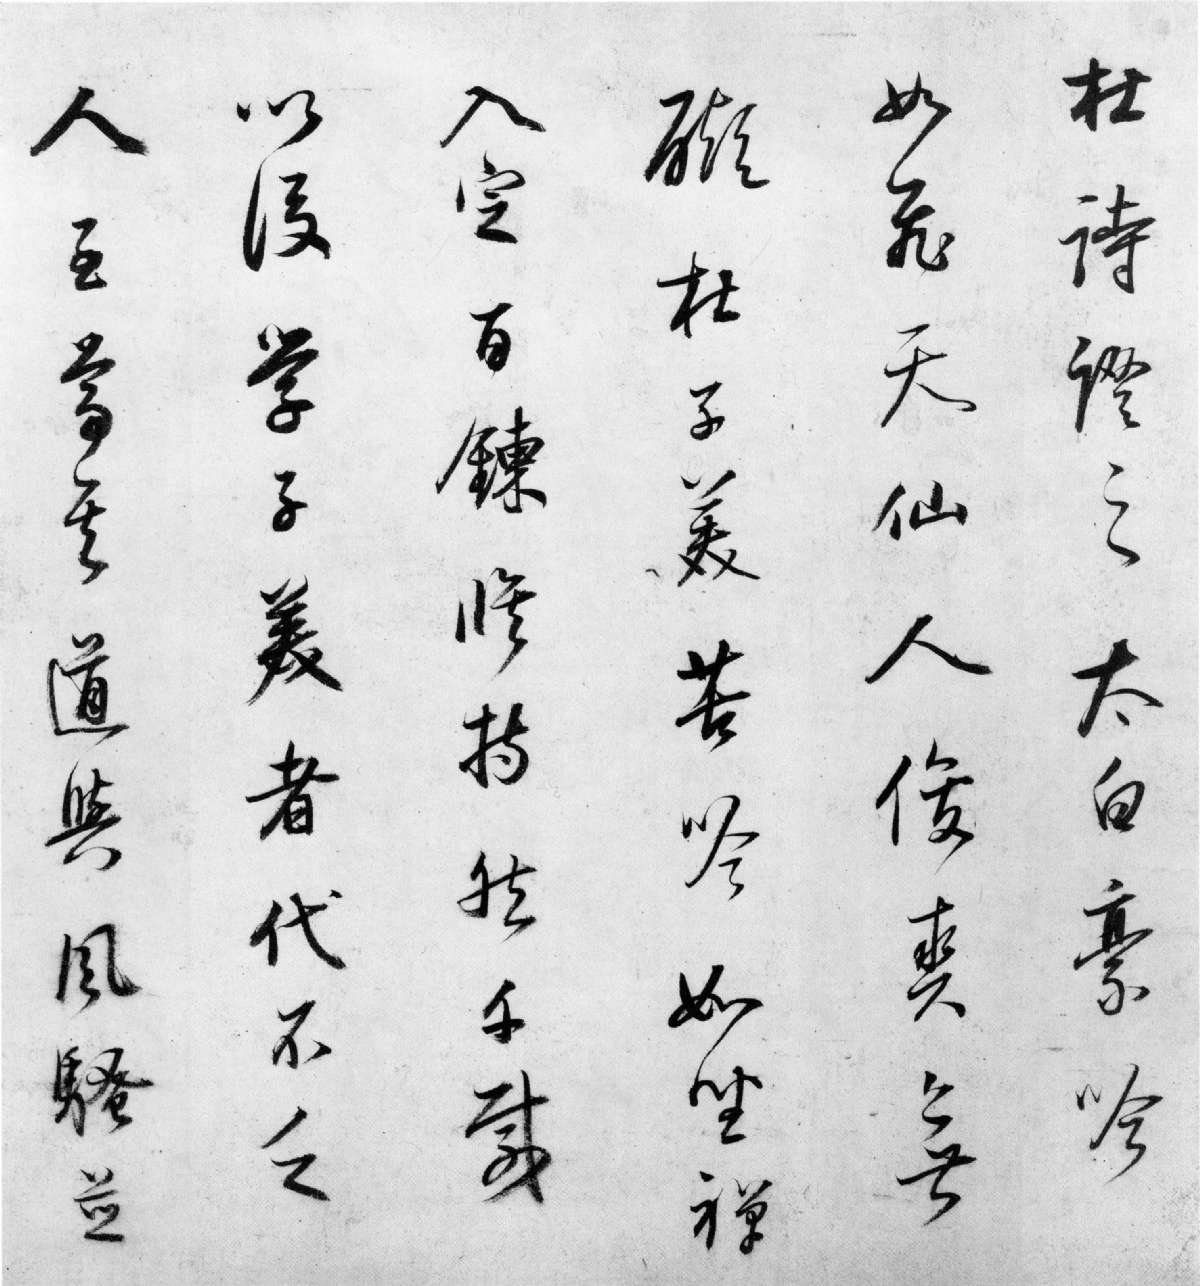 杜詩證之太白豪吟
如飛天仙人俊爽無
礙杜子美苦吟如坐禪
入定百鍊脩持然千載
以後學子美者代不乏
人至當其道與風騷並